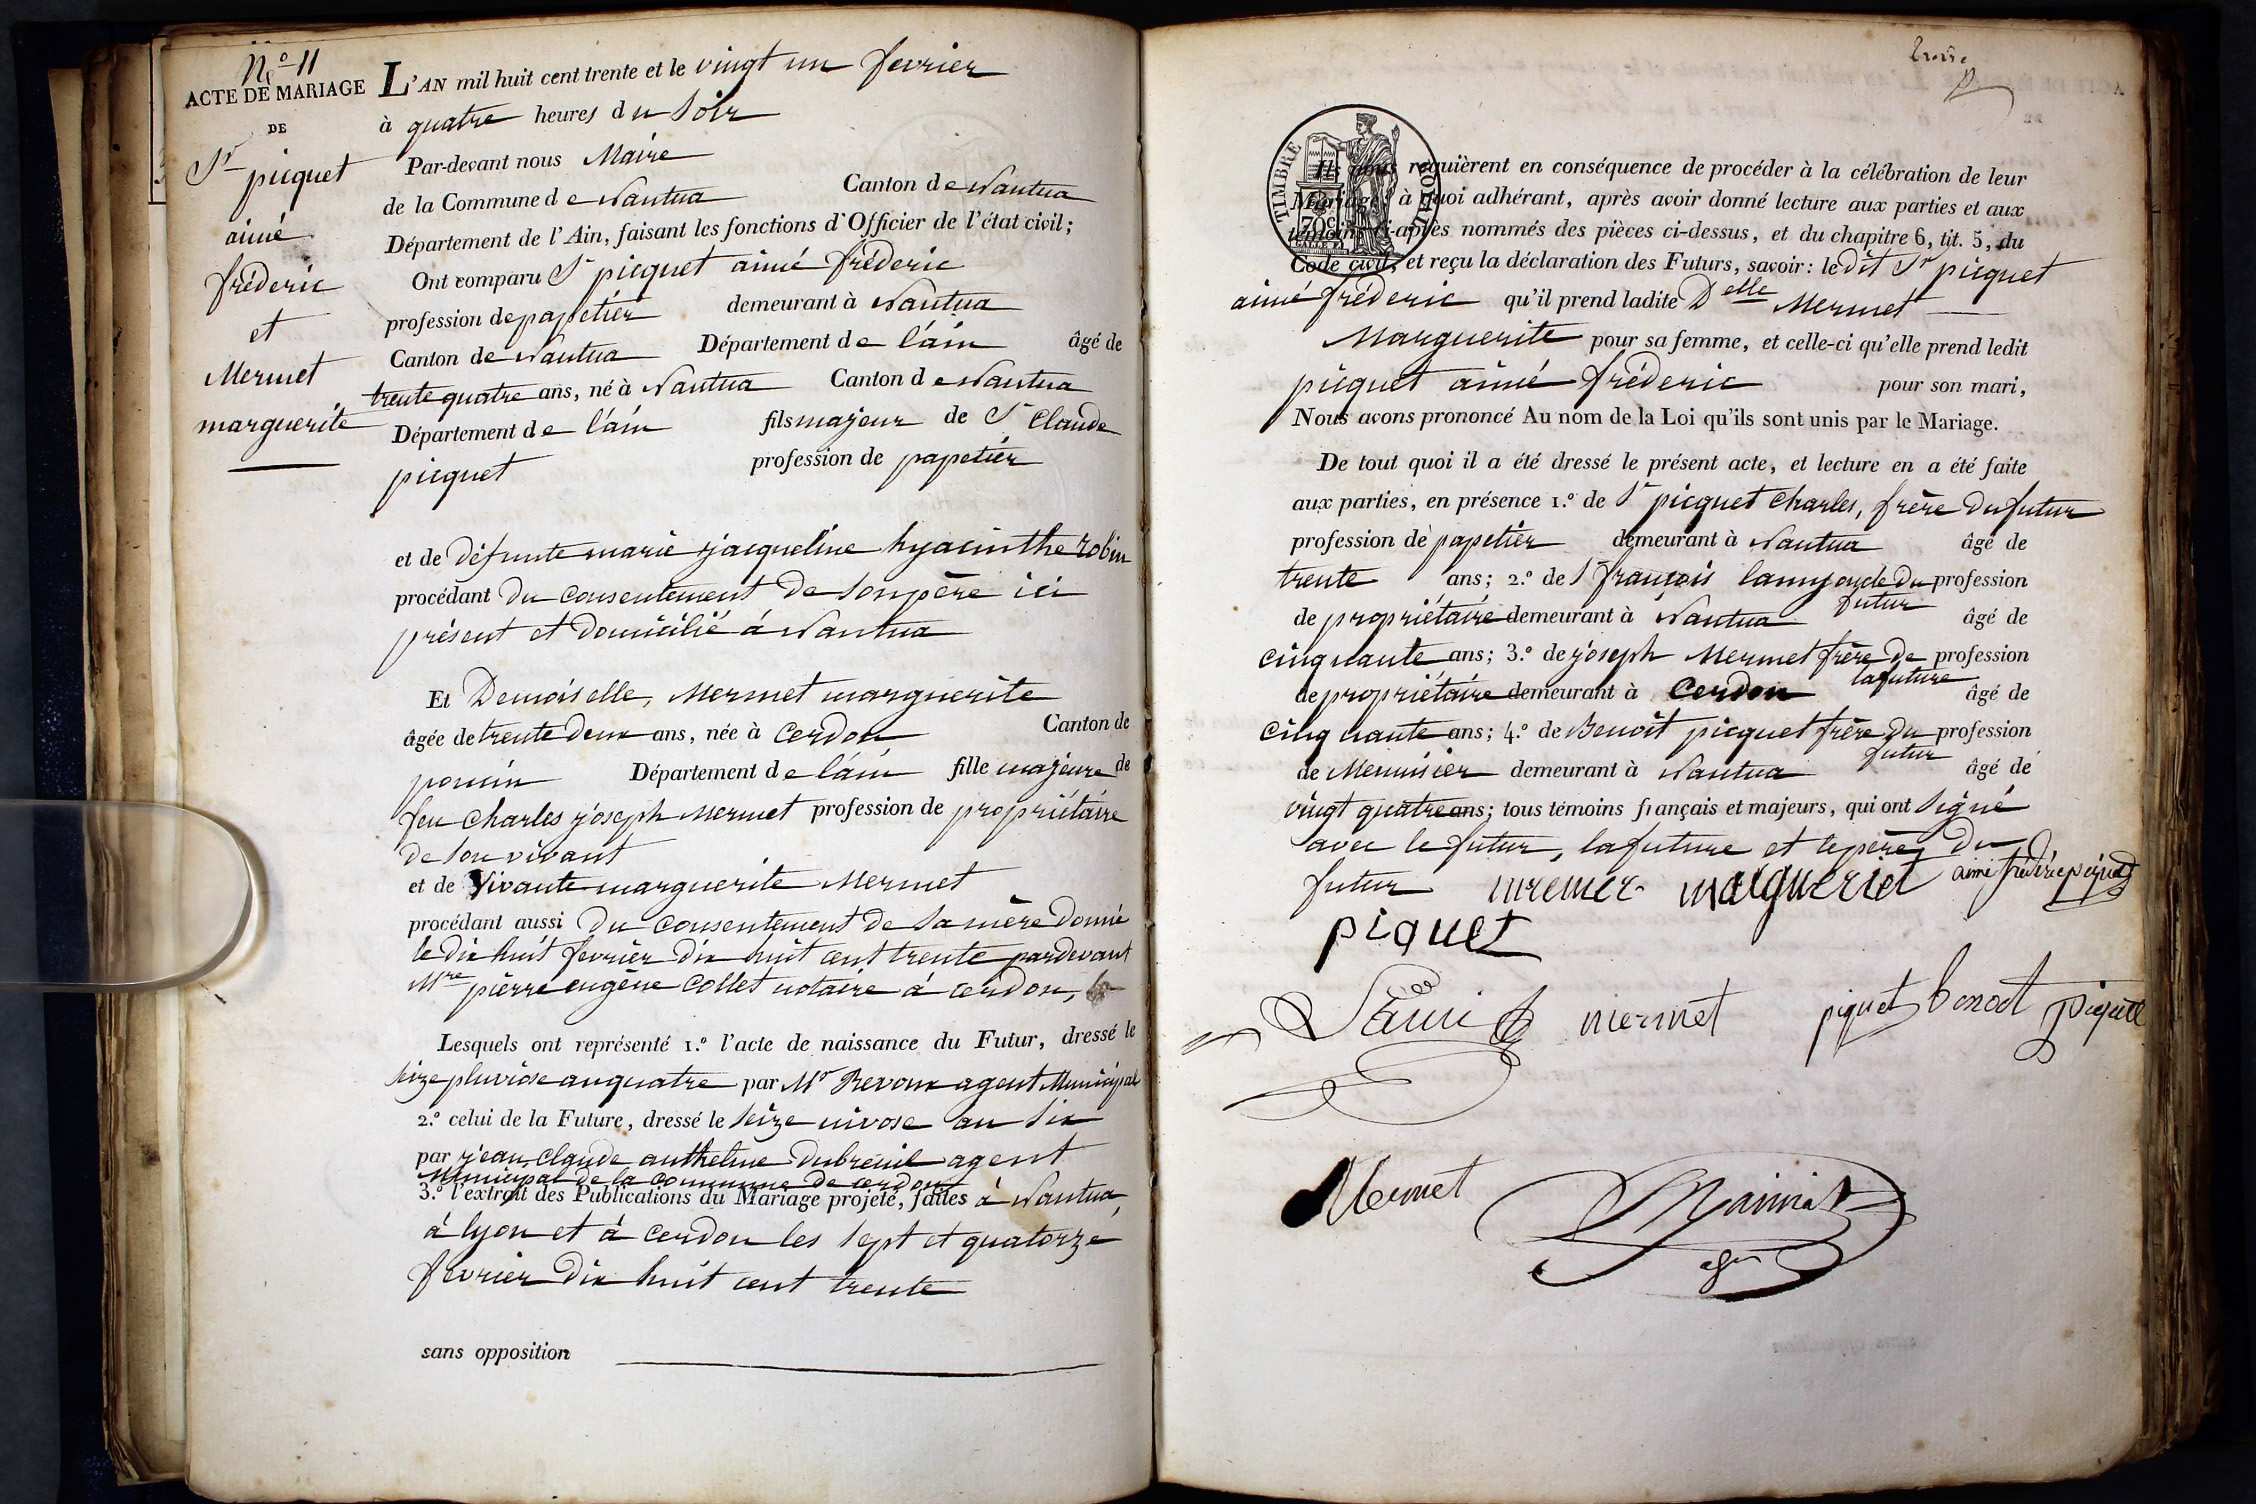 N.o 11
ACTE DE MARIAGE
DE
Sr picquet
aimé
fréderic
et
Mermet
marguerite
L'AN mil huit cent trente et le vingt un fevrier
à quatre heures du soir
Par-devant nous Maire
de la Commune de Nantua Canton de Nantua
Département de l'Ain, faisant les fonctions d'Officier de l'état civil;
Ont comparu Sr picquet aimé fréderic
profession de papetier demeurant à Nantua
Canton de Nantua Département de l'ain âgé de
trente quatre ans, né à Nantua Canton de Nantua
Département de l'ain fils majeur de Sr Claude
picquet profession de papetier
et de défunte marie jacqueline hyacinthe robin
procédant du consentement de son père ici
présent et domicilié à Nantua
Et Demoiselle, Mermet marguerite
âgée de trente deux ans, née à Cerdon Canton de
poncin Département de l'ain fille majeure de
feu Charles joseph Mermet profession de propriétaire
de son vivant
et de Vivante marguerite Mermet
procédant aussi du consentement de sa mère donné
le dix huit fevrier dix huit cent trente pardevant
Mre pierre eugène Collet notaire à cerdon,
Lesquels ont représenté 1.o l'acte de naissance du Futur, dressé le
seize pluviose an quatre par Mr Revoux agent Municipal
2.o celui de la Future, dressé le seize nivose an six
par jean Claude anthelme dubreuil agent
Municipal de la commune de cerdon
3.o l'extrait des Publications du Mariage projeté, faites à Nantua,
à lyon et à cerdon les sept et quatorze
fevrier dix huit cent trente
sans opposition
TIMBRE ROYAL
70c
Ils nous requièrent en conséquence de procéder à la célébration de leur
Mariage; à quoi adhérant, après avoir donné lecture aux parties et aux
témoins ci-après nommés des pièces ci-dessus, et du chapitre 6, tit. 5, du
Code civil, et reçu la déclaration des Futurs, savoir: le dit Sr picquet
aimé fréderic qu'il prend ladite Delle Mermet
Marguerite pour sa femme, et celle-ci qu'elle prend ledit
picquet aimé fréderic pour son mari,
Nous avons prononcé Au nom de la Loi qu'ils sont unis par le Mariage.
De tout quoi il a été dressé le présent acte, et lecture en a été faite
aux parties, en présence 1.o de Sr picquet Charles, frère du futur
profession de papetier demeurant à Nantua âgé de
trente ans; 2.o de S françois lamy oncle du profession
futur
de propriétaire demeurant à Nantua âgé de
cinquante ans; 3.o de joseph Mermet frère de profession
la future
de propriétaire demeurant à Cerdon âgé de
cinquante ans; 4.o de Benoît picquet frère du profession
futur
de Menuisier demeurant à Nantua âgé de
vingt quatre ans; tous témoins français et majeurs, qui ont signé
avec le futur, la future et le père du
futur mremet malgueriet aimé fréderic piquet
piquet
Lami mermet piquet benoot piquet
Mermet